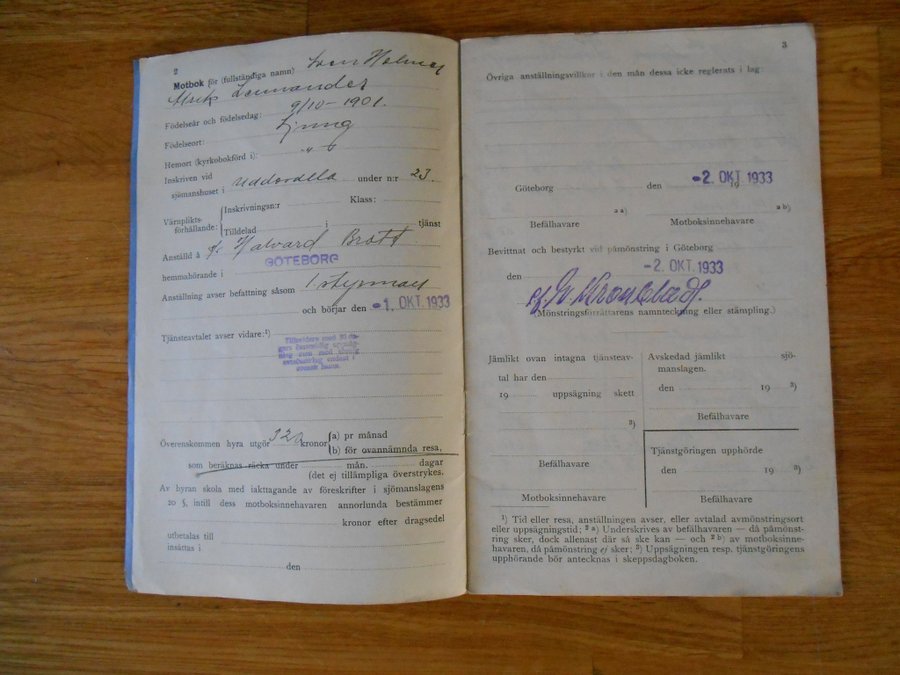 2
Motbok för (fullständiga namn) Sven Helmer
Ulrik Lennander
Födelseår och födelsedag: 9/10 - 1901.
Födelseort: Ljung
Hemort (kyrkobokförd i): " "
Inskriven vid
sjömanshuset i Uddevalla under n:r 23.
Värnplikts-
förhållande:
Inskrivningsn:r Klass:
Tilldelad i tjänst
Anställd å Halvard Bratt
hemmahörande i GÖTEBORG
Anställning avser befattning såsom 1 styrman
och börjar den -1. OKT. 1933
Tjänsteavtalet avser vidare:¹)
Tillsvidare med 30 da-
svensk hamn.
Överenskommen hyra utgör 320 kronor
(a) pr månad
(b) för ovannämnda resa,
som beräknas räcka under mån. dagar
(det ej tillämpliga överstrykes.
Av hyran skola med iakttagande av föreskrifter i sjömanslagens
20 §, intill dess motboksinnehavaren annorlunda bestämmer
kronor efter dragsedel
utbetalas till
insättas i
den
3
Övriga anställningsvillkor i den mån dessa icke reglerats i lag:
Göteborg den -2. OKT. 1933
19
²ᵃ) ²ᵇ)
Befälhavare Motboksinnehavare
Bevittnat och bestyrkt vid påmönstring i Göteborg
den -2. OKT. 1933
(Mönstringsförrättarens namnteckning eller stämpling.)
Jämlikt ovan intagna tjänsteav-
tal har den
19 uppsägning skett
³)
Befälhavare
Motboksinnehavare
Avskedad jämlikt sjö-
manslagen.
den 19 ³)
Befälhavare
Tjänstgöringen upphörde
den 19 ³)
Befälhavare
¹) Tid eller resa, anställningen avser, eller avtalad avmönstringsort
eller uppsägningstid; ²ᵃ) Underskrives av befälhavaren — då påmönst-
ring sker, dock allenast där så ske kan — och ²ᵇ) av motboksinne-
havaren, då påmönstring ej sker; ³) Uppsägningen resp. tjänstgöringens
upphörande bör antecknas i skeppsdagboken.